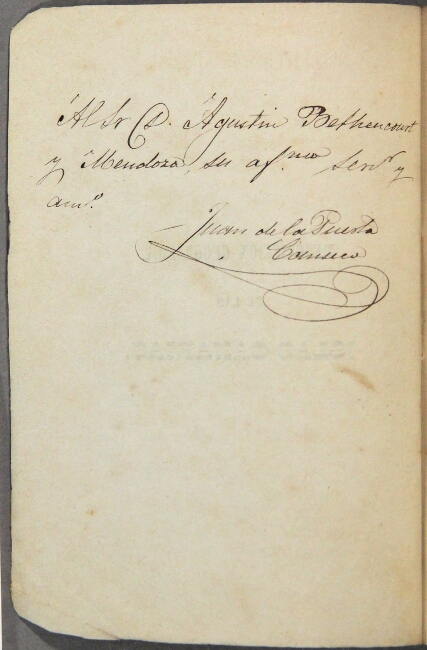 Al Sr D. Agustin Bethencourt
y Mendoza, su af.mo serv.r y
am.o
Juan de la Puerta
Canseco